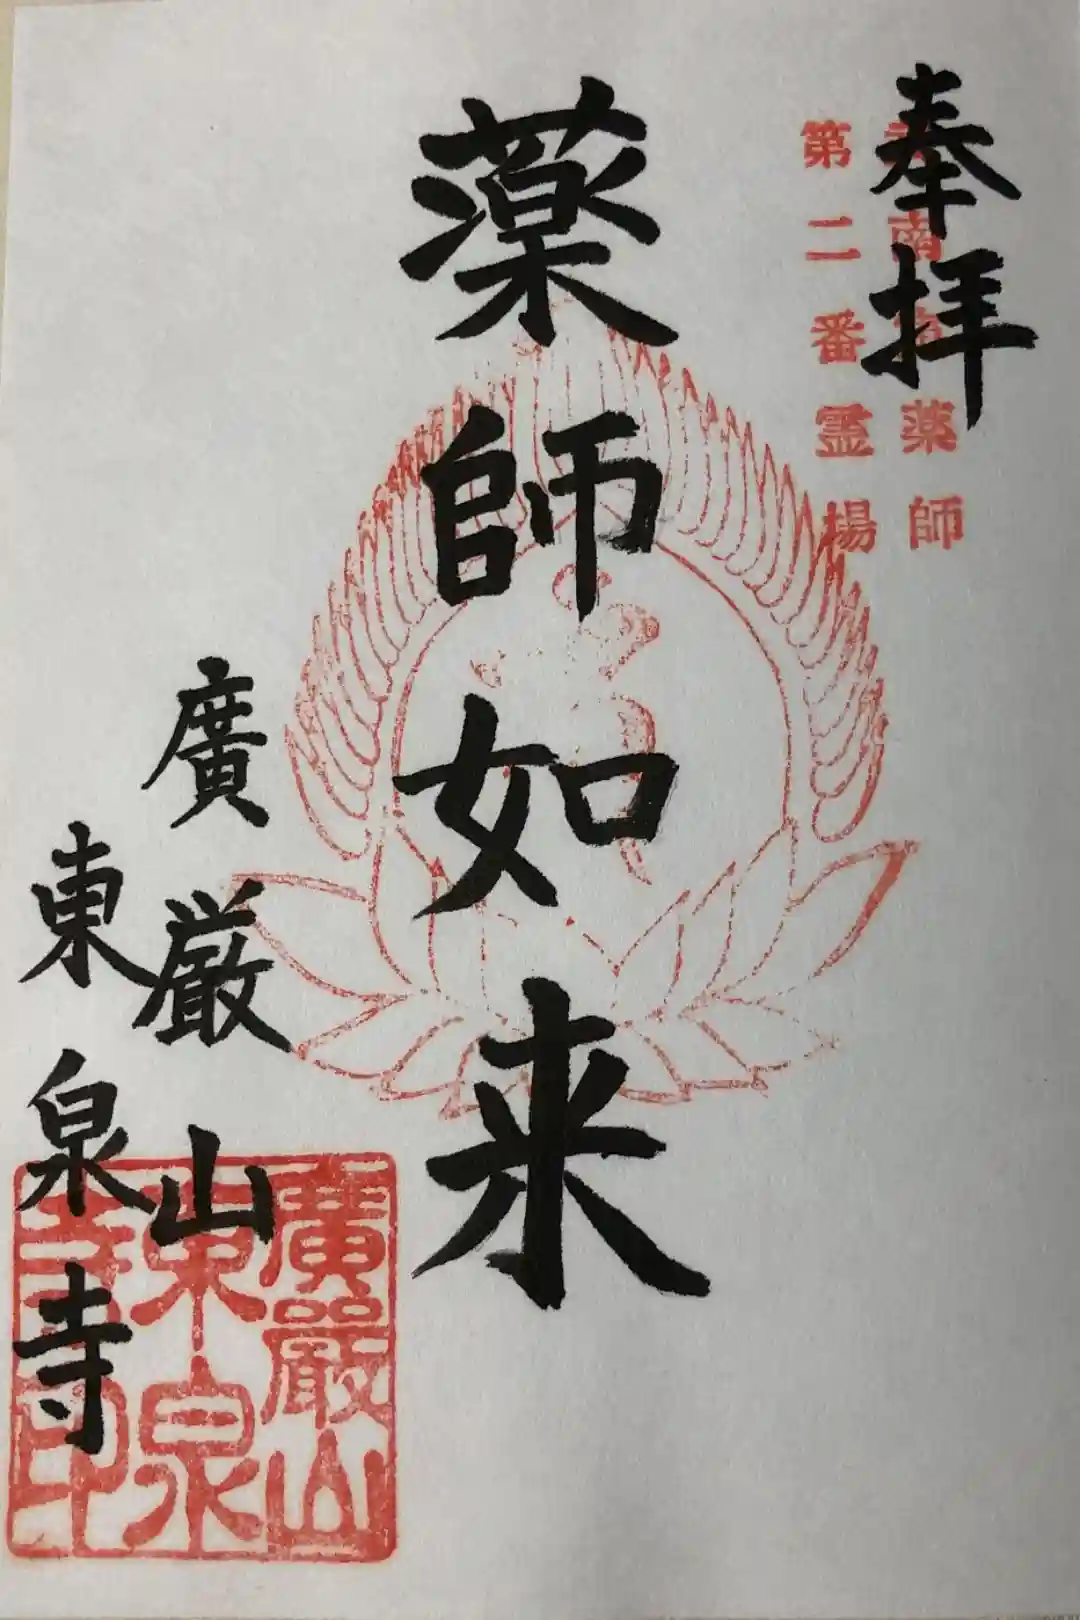 奉拝
南薬師
第二番霊場
薬師如来
廣厳山
東泉寺
廣嚴山
東泉
寺印